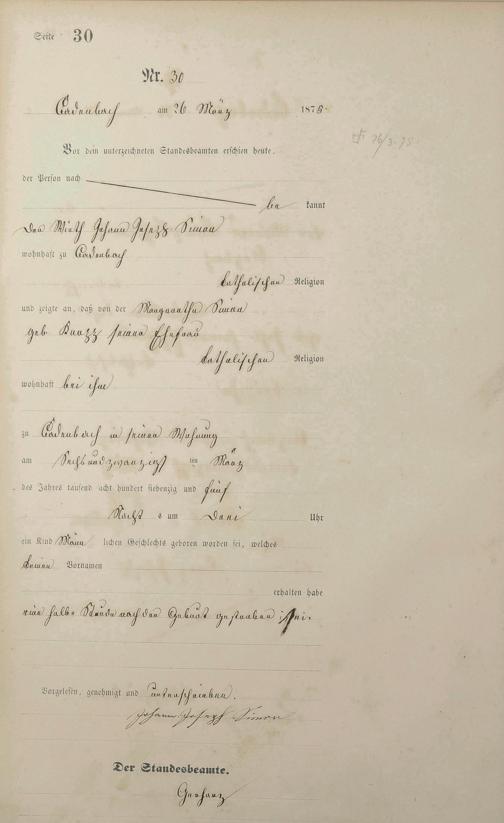 Seite 30
Nr. 30
Cadenbach am 26 März 1875.
Vor dem unterzeichneten Standesbeamten erschien heute,
der Person nach
be kannt
der Wirth Johann Joseph Simon
wohnhaft zu Cadenbach
katholischer Religion
und zeigte an, daß von der Margaretha Simon
geb. seiner Ehefrau
katholischer Religion
wohnhaft bei ihm
zu Cadenbach in seiner Wohnung
am Sechsundzwanzigst ten März
des Jahres tausend acht hundert siebenzig und fünf
Nachts um Drei Uhr
ein Kind Männ lichen Geschlechts geboren worden sei, welches
keinen Vornamen
erhalten habe
eine halbe Stunde nach der Geburt gestorben sei.
Vorgelesen, genehmigt und unterschrieben.
Johann Joseph Simon
Der Standesbeamte.
Gerharz
26/3. 75